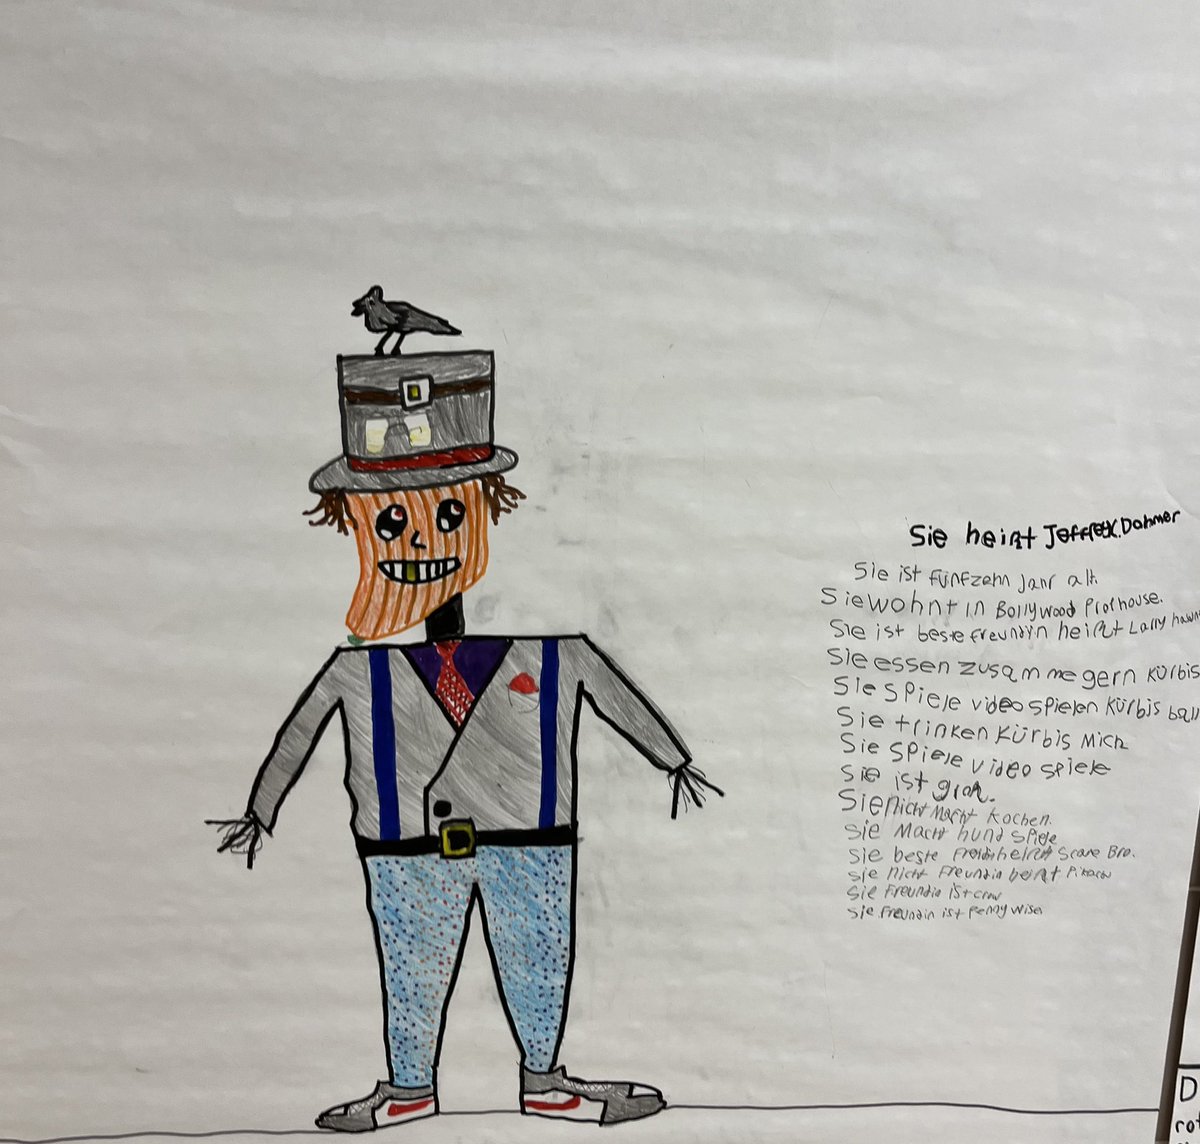 Sie heißt Jeffrey Dahmer
Sie ist fünfzehn Jahr alt
Sie wohnt in Bollywood Prothouse.
Sie ist beste freundin heißt Larry hawn
Sie essen zusamme gern Kürbis
Sie spiele video spielen Kürbis ball
Sie trinken Kürbis Milch
Sie spiele video spiele
Sie ist groß.
Sie nicht Macht Kochen.
Sie Macht hund spiele
Sie beste heißt Scare Bro.
Sie nicht Freundin heißt
Sie Freundin ist crow
Sie Freundin ist Pennywise
D
rot